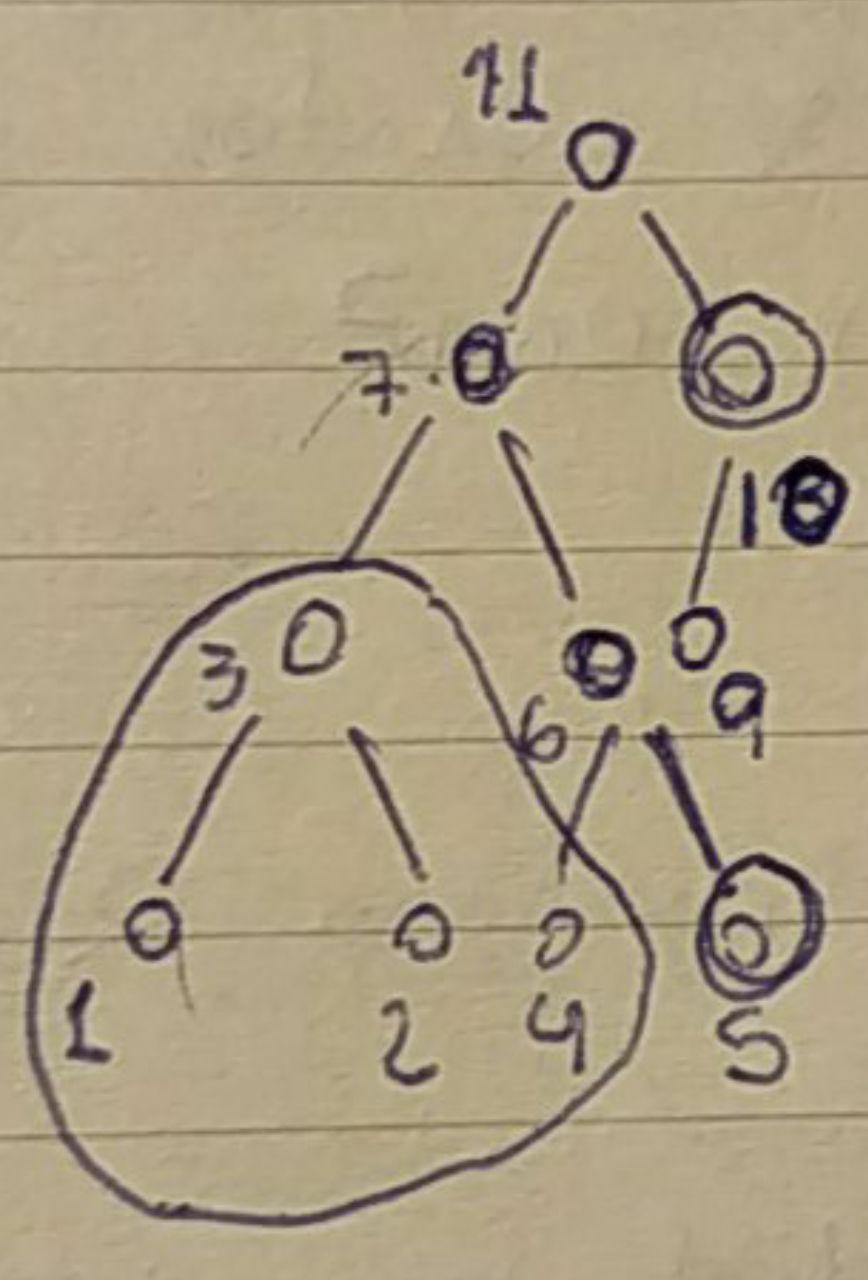 11
7
3
6
9
1
2
4
5